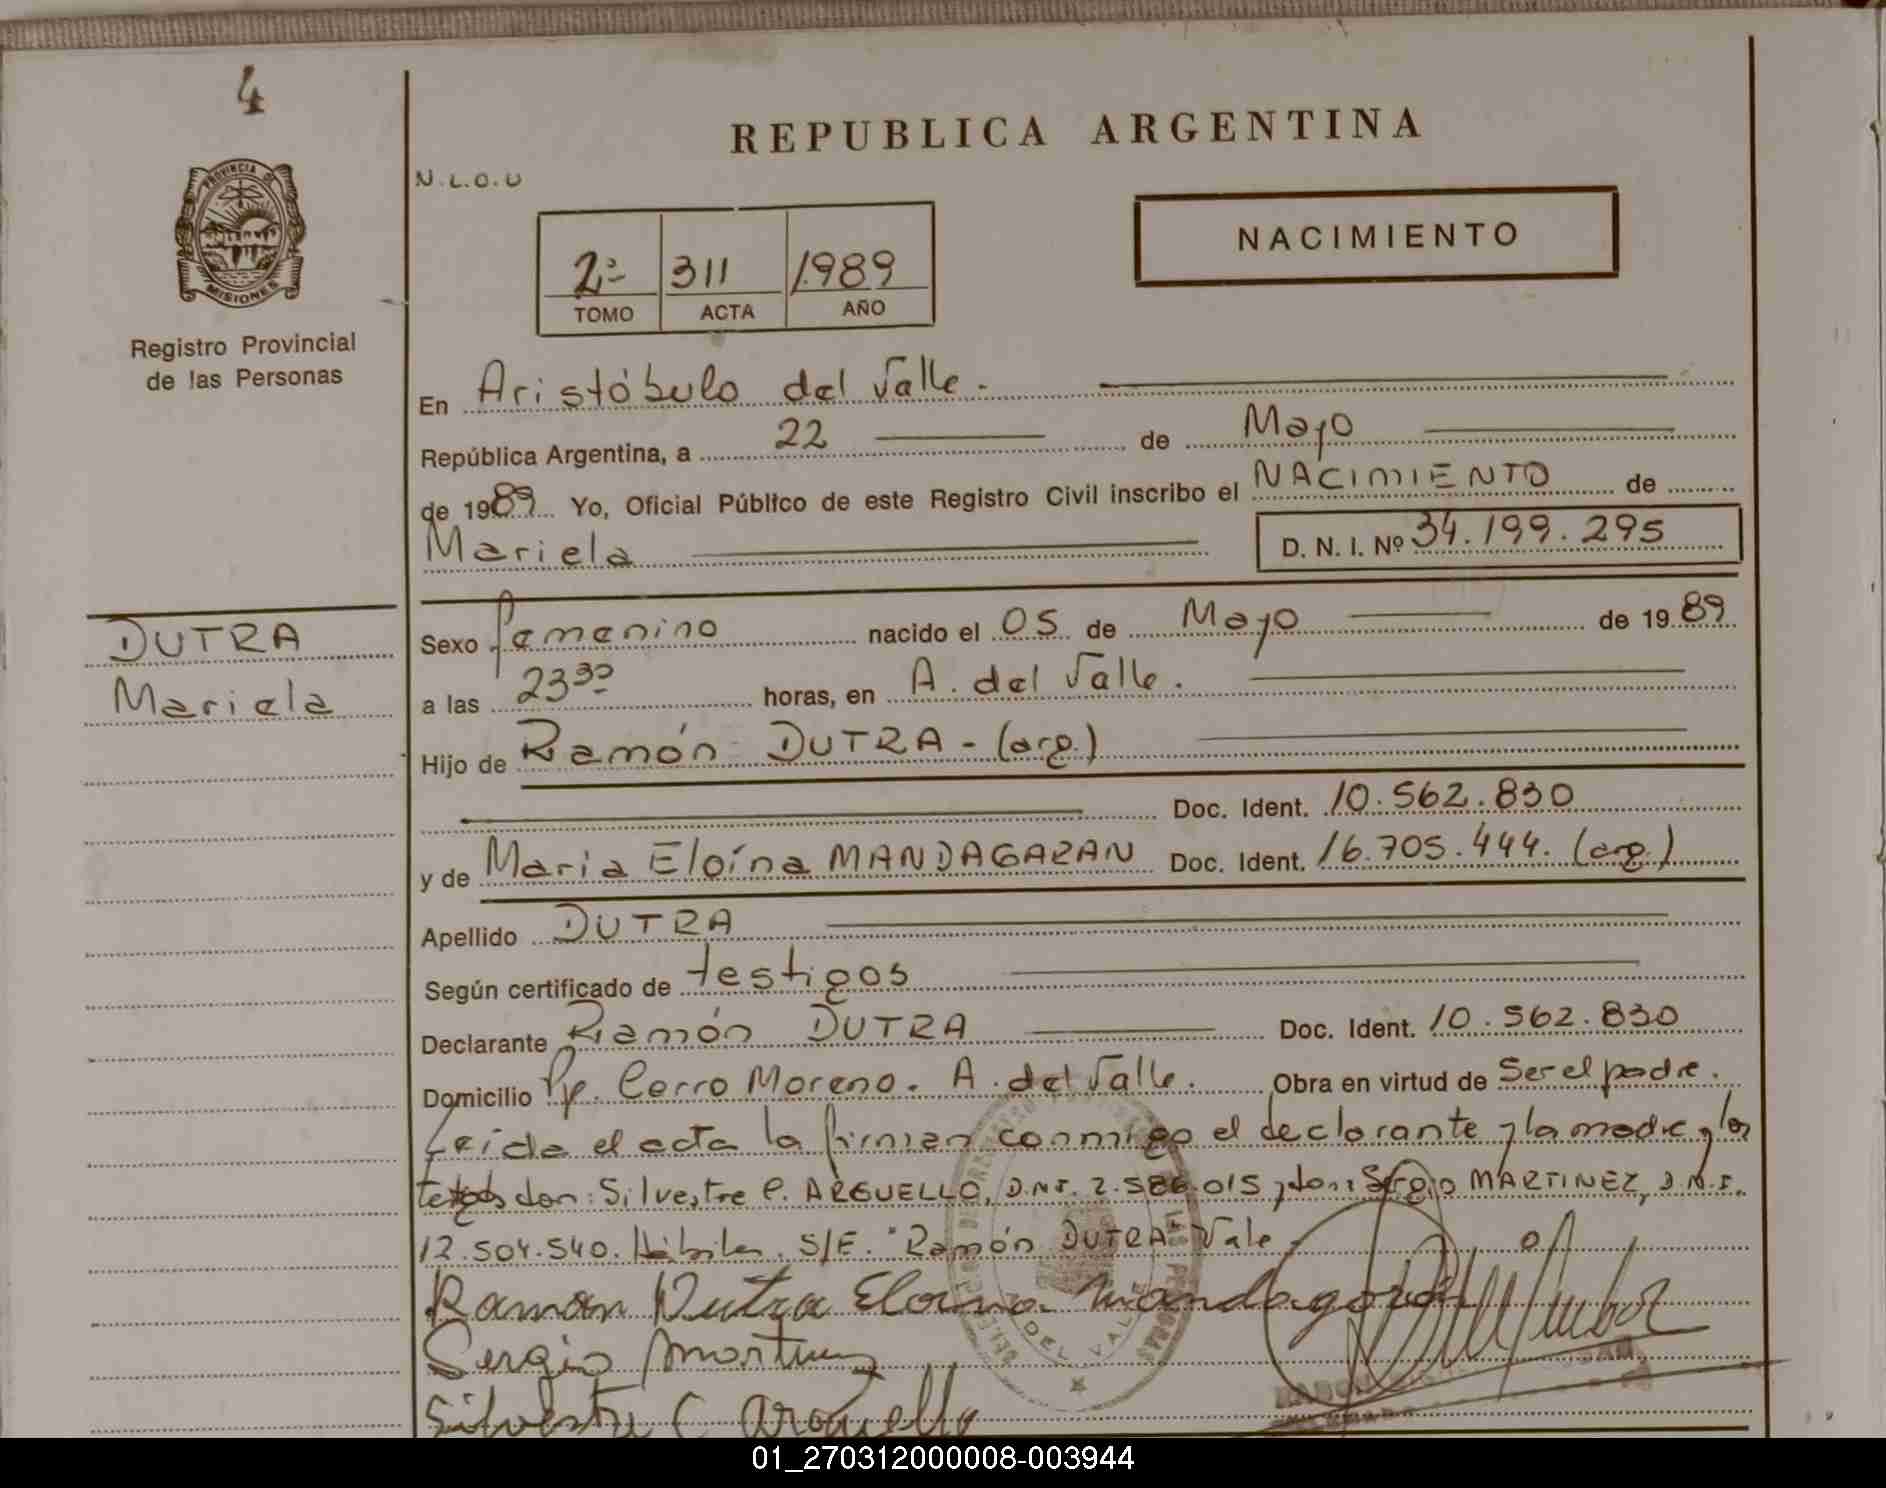 4
PROVINCIA DE
MISIONES
Registro Provincial
de las Personas
REPUBLICA ARGENTINA
N.L.O.U
NACIMIENTO
2º 311 1989
TOMO ACTA AÑO
En Aristóbulo del Valle.
República Argentina, a 22 de Mayo
de 1989 Yo, Oficial Público de este Registro Civil inscribo el NACIMIENTO de
Mariela D. N. I. Nº 34.199.295
DUTRA
Mariela
Sexo femenino nacido el 05 de Mayo de 1989
a las 23 30 horas, en A. del Valle.
Hijo de Ramón DUTRA - (arg.)
Doc. Ident. 10.562.830
y de Maria Eloína MANDAGARAN Doc. Ident. 16.705.444. (arg.)
Apellido DUTRA
Según certificado de testigos
Declarante Ramón DUTRA Doc. Ident. 10.562.830
Domicilio Pje. Cerro Moreno. A. del Valle. Obra en virtud de Ser el padre.
Leida el acta la firman conmigo el declarante y la madre y los
testigos don: Silvestre C. ARGUELLO, D.N.I. 2.586.015 y don: Sergio MARTINEZ, D.N.I.
12.504.540. Hábiles. S/E. "Ramón DUTRA" Vale.
Ramon Dutra Eloina Mandagaran
Sergio Martinez
Silvestre C Arguello
DEL VALLE
01_270312000008-003944